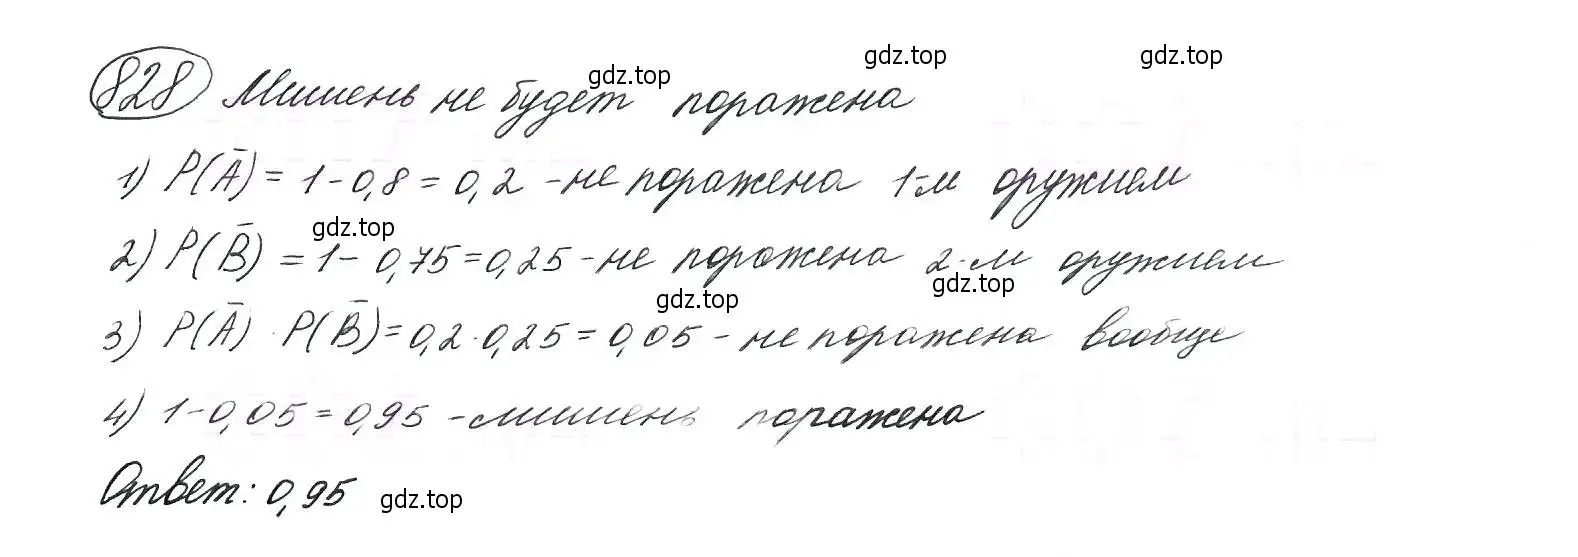 828 Мишень не будет поражена
1) P(Ā) = 1 - 0,8 = 0,2 - не поражена 1-м оружием
2) P(B̄) = 1 - 0,75 = 0,25 - не поражена 2-м оружием
3) P(Ā) · P(B̄) = 0,2 · 0,25 = 0,05 - не поражена вообще
4) 1 - 0,05 = 0,95 - мишень поражена
Ответ: 0,95
gdz.top
gdz.top
gdz.top
gdz.top
gdz.top
gdz.top
gdz.top